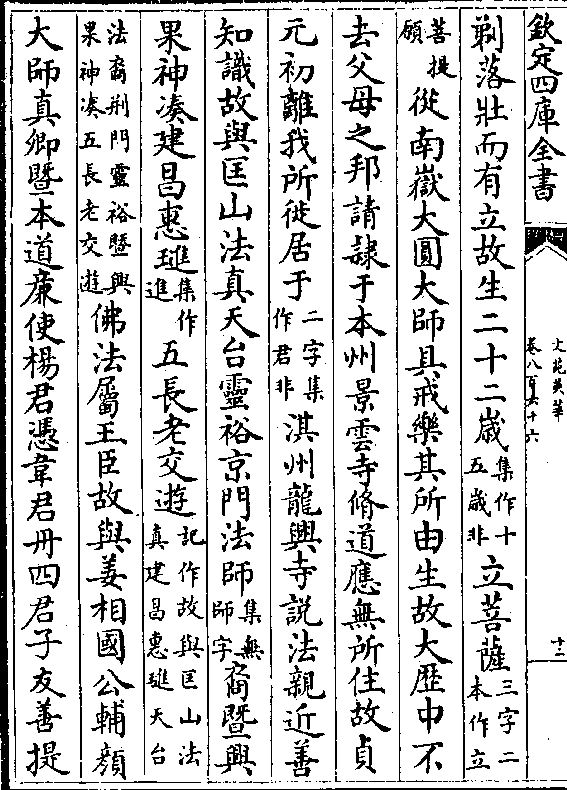 欽定四庫全書
文苑英華
卷八百六十六
十二
剃落壯而有立故生二十二歲集作十五歲非立菩薩三字二本作立
菩提願從南嶽大圓大師具戒樂其所由生故大歷中不
去父母之邦請隷于本州景雲寺脩道應無所住故貞
元初離我所徙居于二字集作君非淇州龍興寺説法親近善
知識故與匡山法真天台靈裕京門法師集無師字裔暨興
果神湊建昌惠璡集作進五長老交遊記作故與匡山法真建昌惠璡天台
法裔荆門靈裕暨興果神凑五長老交遊佛法屬王臣故與姜相國公輔顔
大師真卿暨本道廉使楊君憑韋君丹四君子友善提